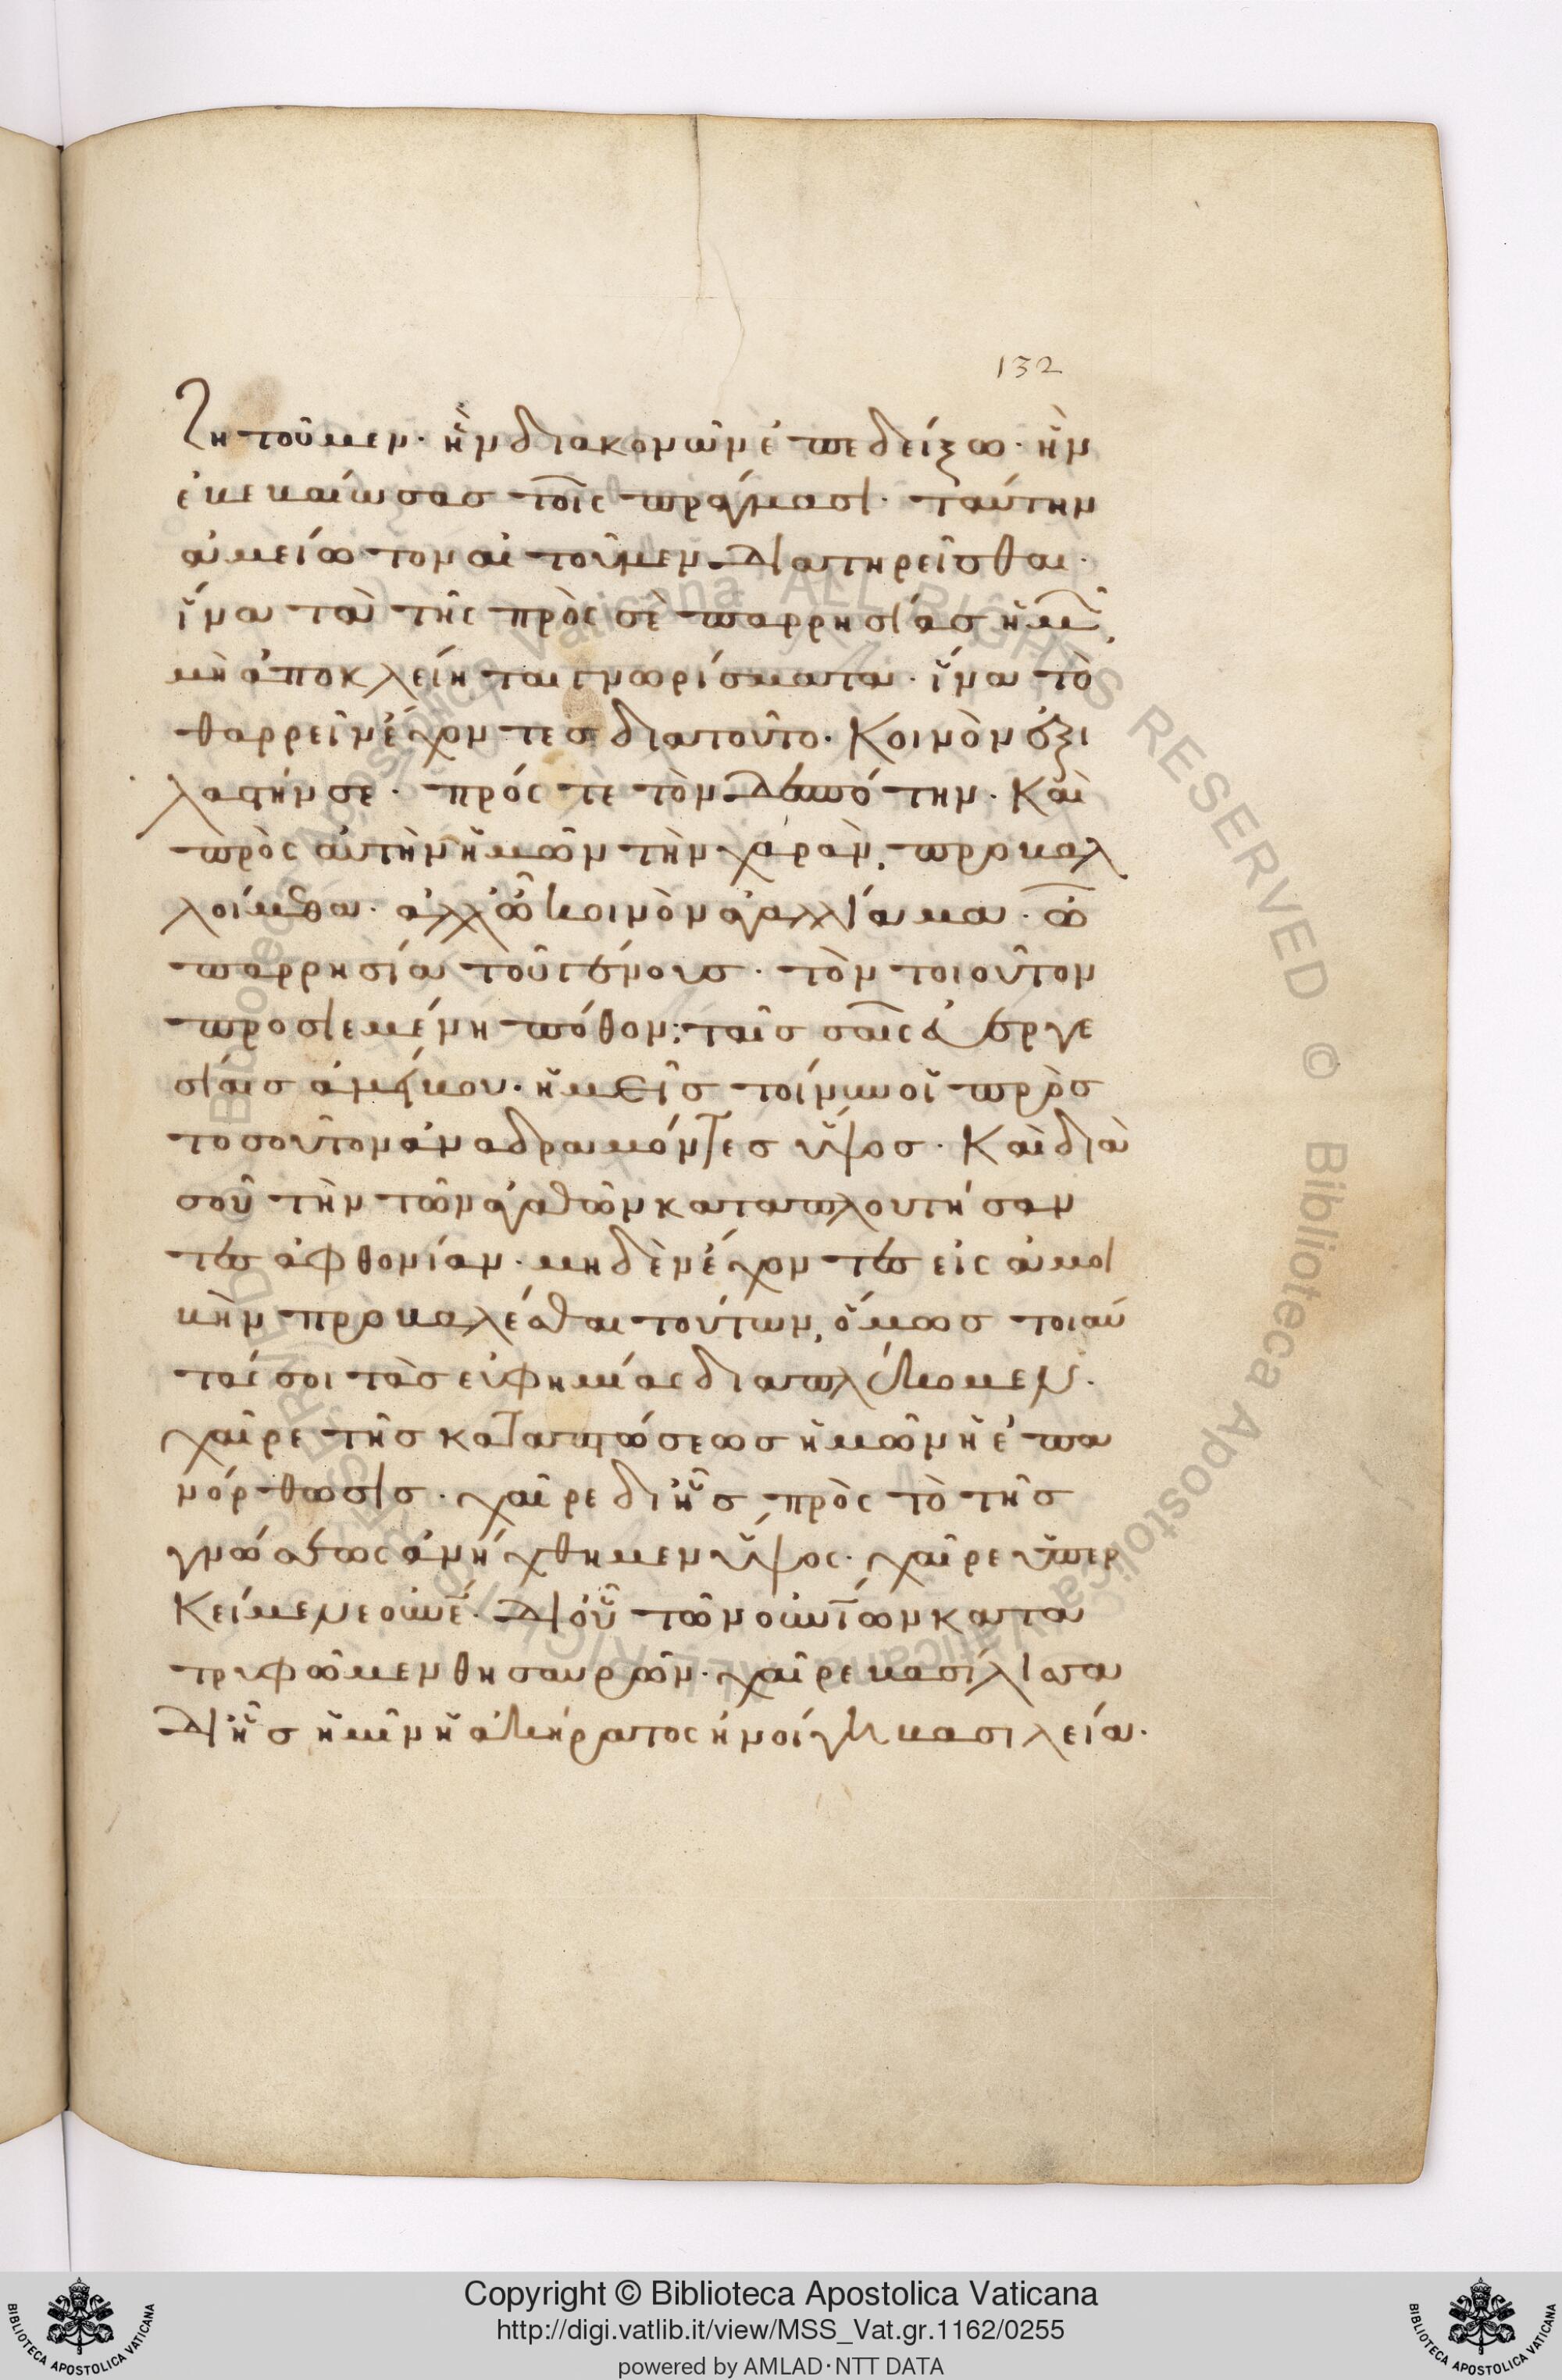 132
ζητοῦμεν· ἣν διακονῶν ἐπεδείξω· ἣν
ἐβεβαίωσας τοῖς πράγμασι· ταύτην
ἀμείωτον αἰτοῦμεν διατηρεῖσθαι·
ἵνα τὰ τῆς πρὸς σὲ παρρησίας ἡμῖν
μὴ ἀποκλείηται γνωρίσματα· ἵνα τὸ
θαρρεῖν ἔχοντες διατοῦτο· κοινὸν ἐξι
λαστήν σε· πρός τε τὸν δεσπότην· καὶ
πρὸς αὐτὴν ἡμῶν τὴν χαρὰν, προβαλ
λοίμεθα· ἀλλ' ὦ κοινὸν ἀγαλλίαμα· ὦ
παρρησία τοῦ γένους· τὸν τοιοῦτον
προσιεμένη πόθον· ταῖς σαῖς εὐεργε
σίαις ἀμείβου· ἡμεῖς τοίνυν οἱ πρὸς
τοσοῦτον ἀναδραμόντες ὕψος· καὶ διὰ
σοῦ τὴν τῶν ἀγαθῶν καταπλουτήσαν
τες ἀφθονίαν· μηδὲν ἔχοντες εἰς ἀμοι
βὴν προβαλέσθαι τούτων, ὅμως τοιαύ
τας σοι τὰς εὐφημίας διαπλέκομεν·
χαῖρε τῆς καταπτώσεως ἡμῶν ἡ ἐπα
νόρθωσις· χαῖρε δι' ἧς πρὸς τὸ τῆς
γνώσεως ἀνήχθημεν ὕψος· χαῖρε ὑπερ
κείμενε οὐνέ· δι' οὗ τῶν οὐνίων κατα
τρυφῶμεν θησαυρῶν· χαῖρε βασίλισσα
δι' ἧς ἡμῖν ἡ ἀκήρατος ἠνοίγη βασιλεία·
Copyright © Biblioteca Apostolica Vaticana
http://digi.vatlib.it/view/MSS_Vat.gr.1162/0255
powered by AMLAD·NTT DATA
BIBLIOTECA APOSTOLICA VATICANA
BIBLIOTECA APOSTOLICA VATICANA